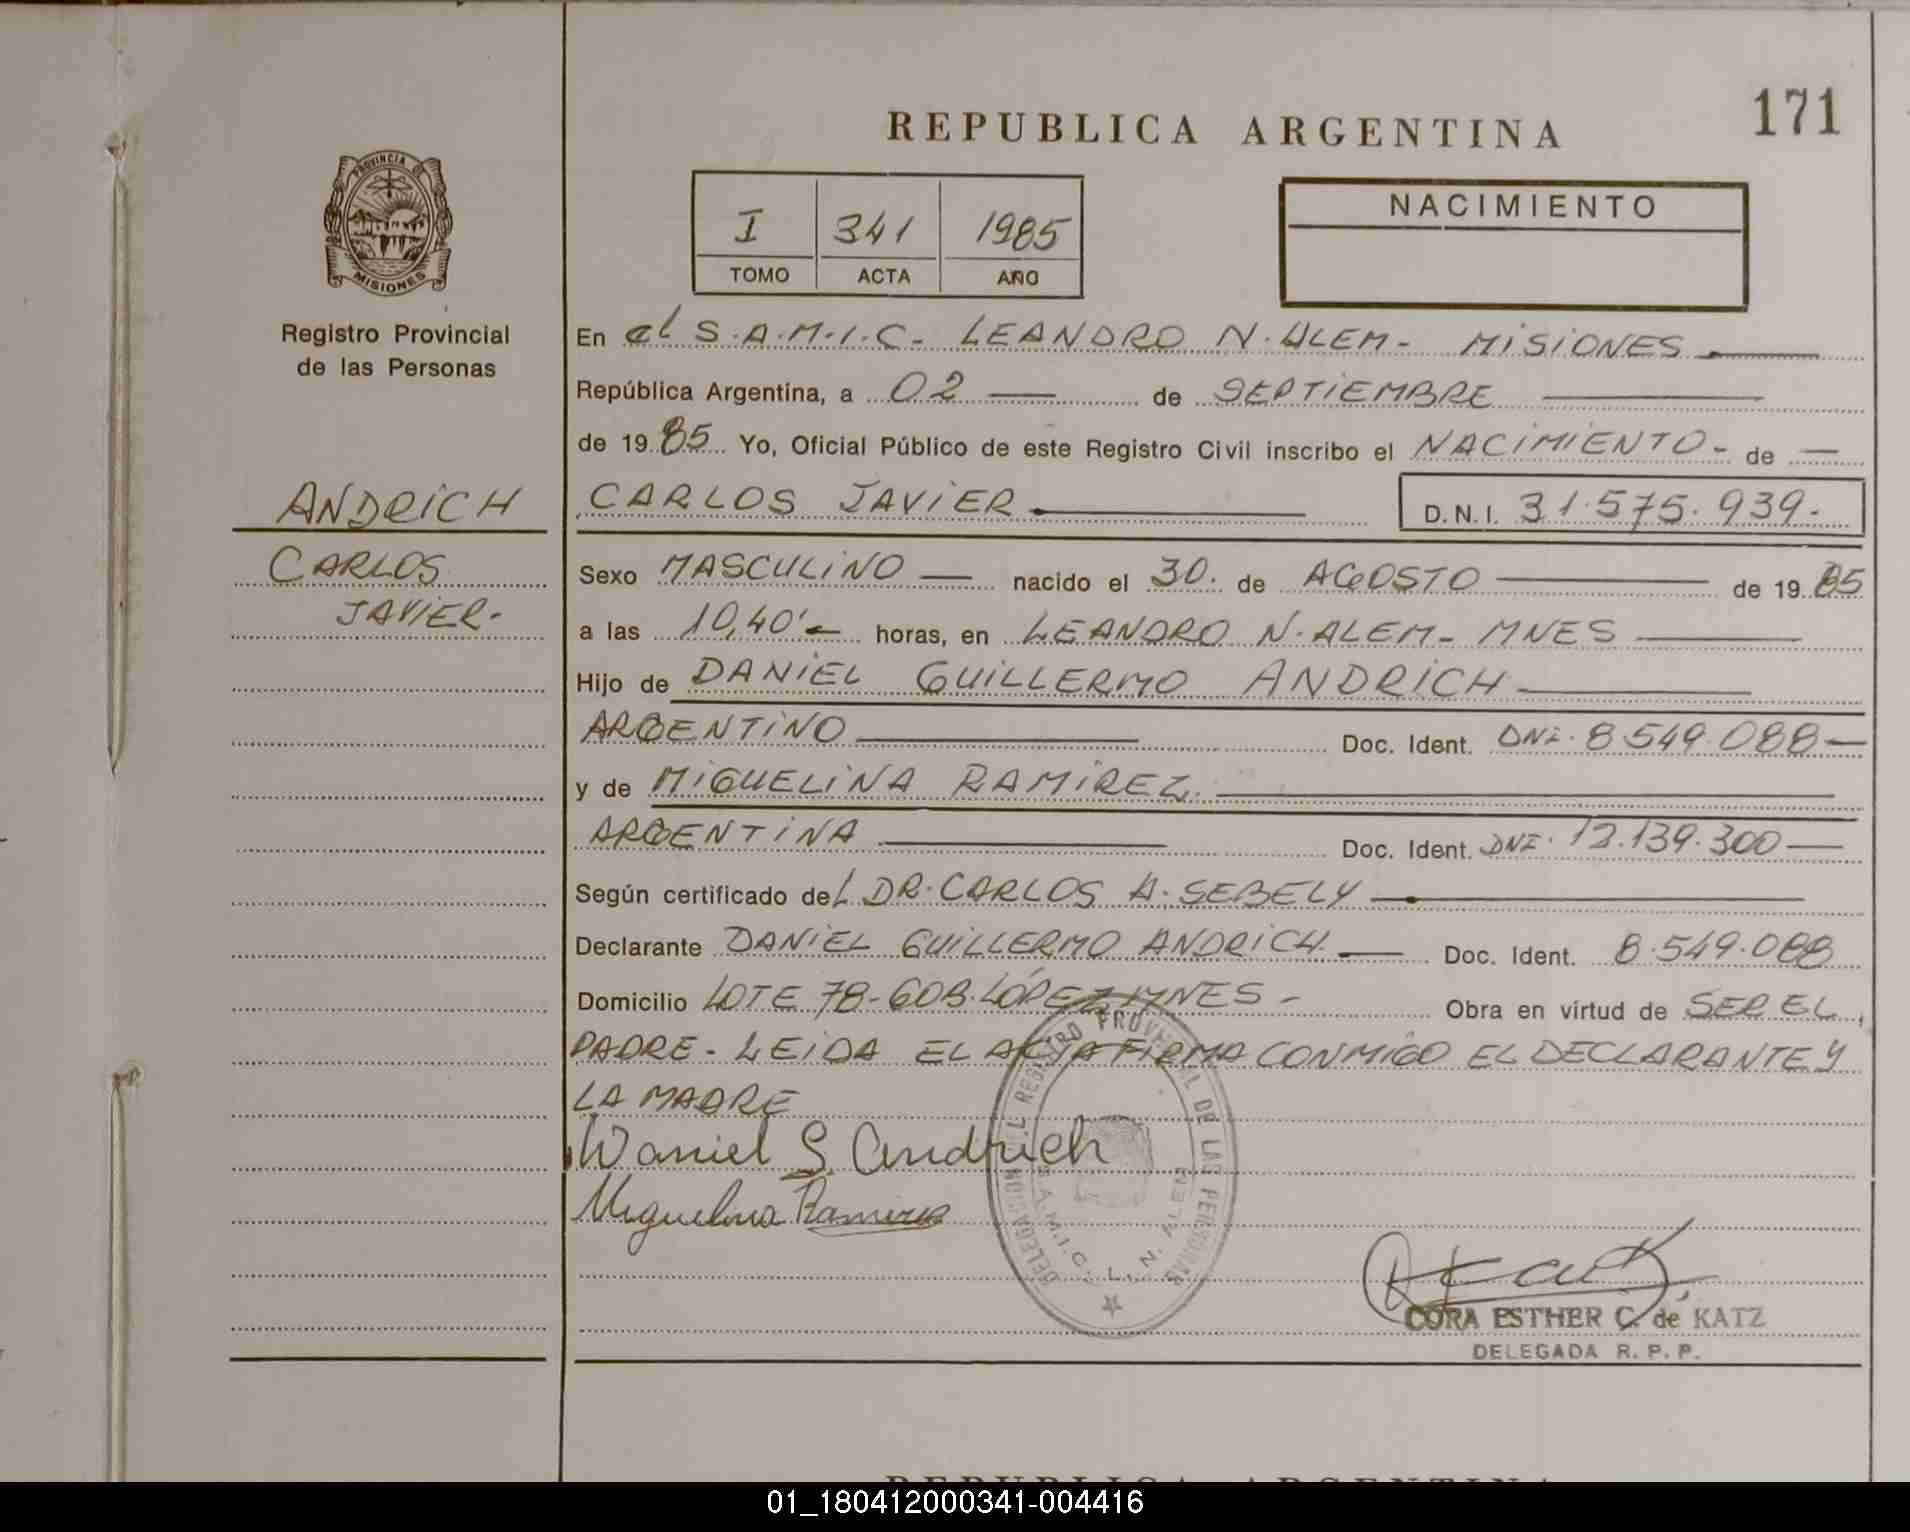 REPUBLICA ARGENTINA
171
PROVINCIA
MISIONES
Registro Provincial
de las Personas
I 341 1985
TOMO ACTA AÑO
NACIMIENTO
En el S.A.M.I.C. LEANDRO N. ALEM - MISIONES
República Argentina, a 02 de SEPTIEMBRE
de 1985 Yo, Oficial Público de este Registro Civil inscribo el NACIMIENTO - de
ANDRICH
CARLOS JAVIER D.N.I. 31.575.939.-
CARLOS
JAVIER.-
Sexo MASCULINO nacido el 30. de AGOSTO de 1985
a las 10,40'- horas, en LEANDRO N. ALEM - MNES
Hijo de DANIEL GUILLERMO ANDRICH
ARGENTINO Doc. Ident. DNI. 8.549.088
y de MIGUELINA RAMIREZ.
ARGENTINA Doc. Ident. DNI. 12.139.300
Según certificado del DR. CARLOS A. SEBELY
Declarante DANIEL GUILLERMO ANDRICH Doc. Ident. 8.549.088
Domicilio LOTE 78 - GOB. LÓPEZ MNES - Obra en virtud de SER EL
PADRE - LEIDA EL ACTA FIRMA CONMIGO EL DECLARANTE Y
LA MADRE
Daniel G. Andrich
Miguelina Ramirez
DELEGACION DEL REGISTRO PROVINCIAL DE LAS PERSONAS
S.A.M.I.C. L. N. ALEM
CORA ESTHER C. de KATZ
DELEGADA R. P. P.
REPUBLICA ARGENTINA
01_180412000341-004416